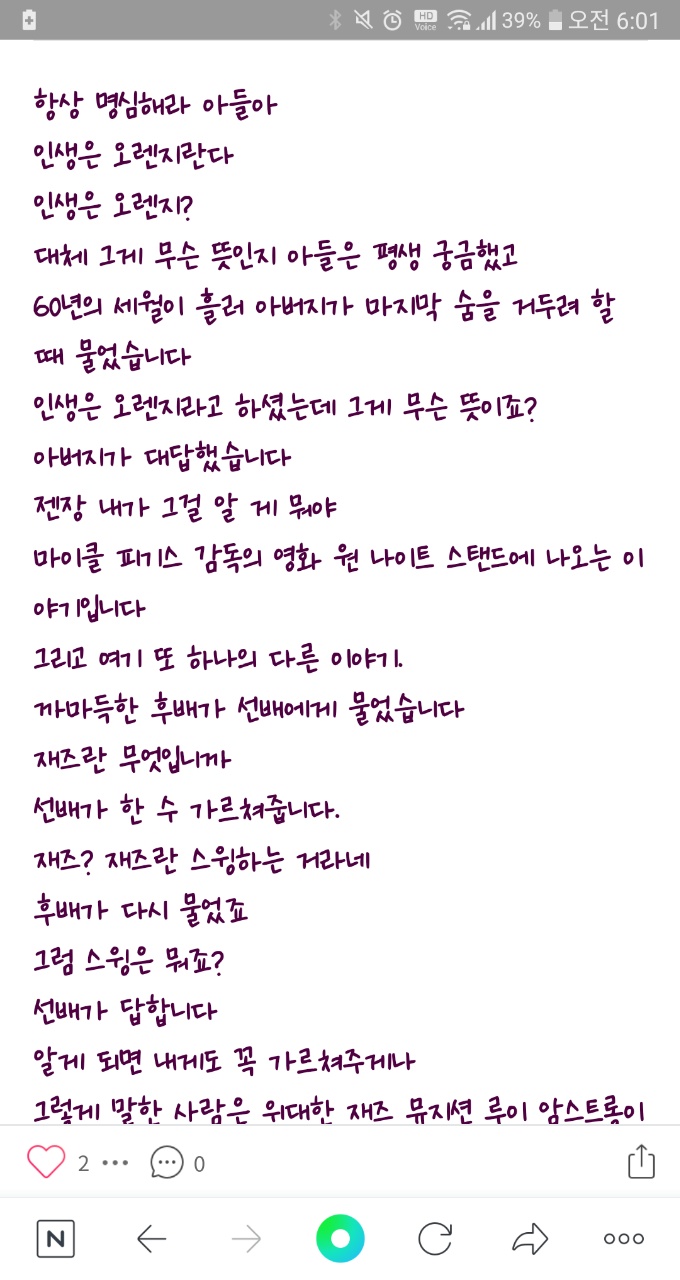 HD Voice 39% 오전 6:01
항상 명심해라 아들아
인생은 오렌지란다
인생은 오렌지?
대체 그게 무슨 뜻인지 아들은 평생 궁금했고
60년의 세월이 흘러 아버지가 마지막 숨을 거두려 할
때 물었습니다
인생은 오렌지라고 하셨는데 그게 무슨 뜻이죠?
아버지가 대답했습니다
젠장 내가 그걸 알 게 뭐야
마이클 피기스 감독의 영화 원 나이트 스탠드에 나오는 이
야기입니다
그리고 여기 또 하나의 다른 이야기.
까마득한 후배가 선배에게 물었습니다
재즈란 무엇입니까
선배가 한 수 가르쳐줍니다.
재즈? 재즈란 스윙하는 거라네
후배가 다시 물었죠
그럼 스윙은 뭐죠?
선배가 답합니다
알게 되면 내게도 꼭 가르쳐주게나
그렇게 말한 사람은 위대한 재즈 뮤지션 루이 암스트롱이
2 0
N